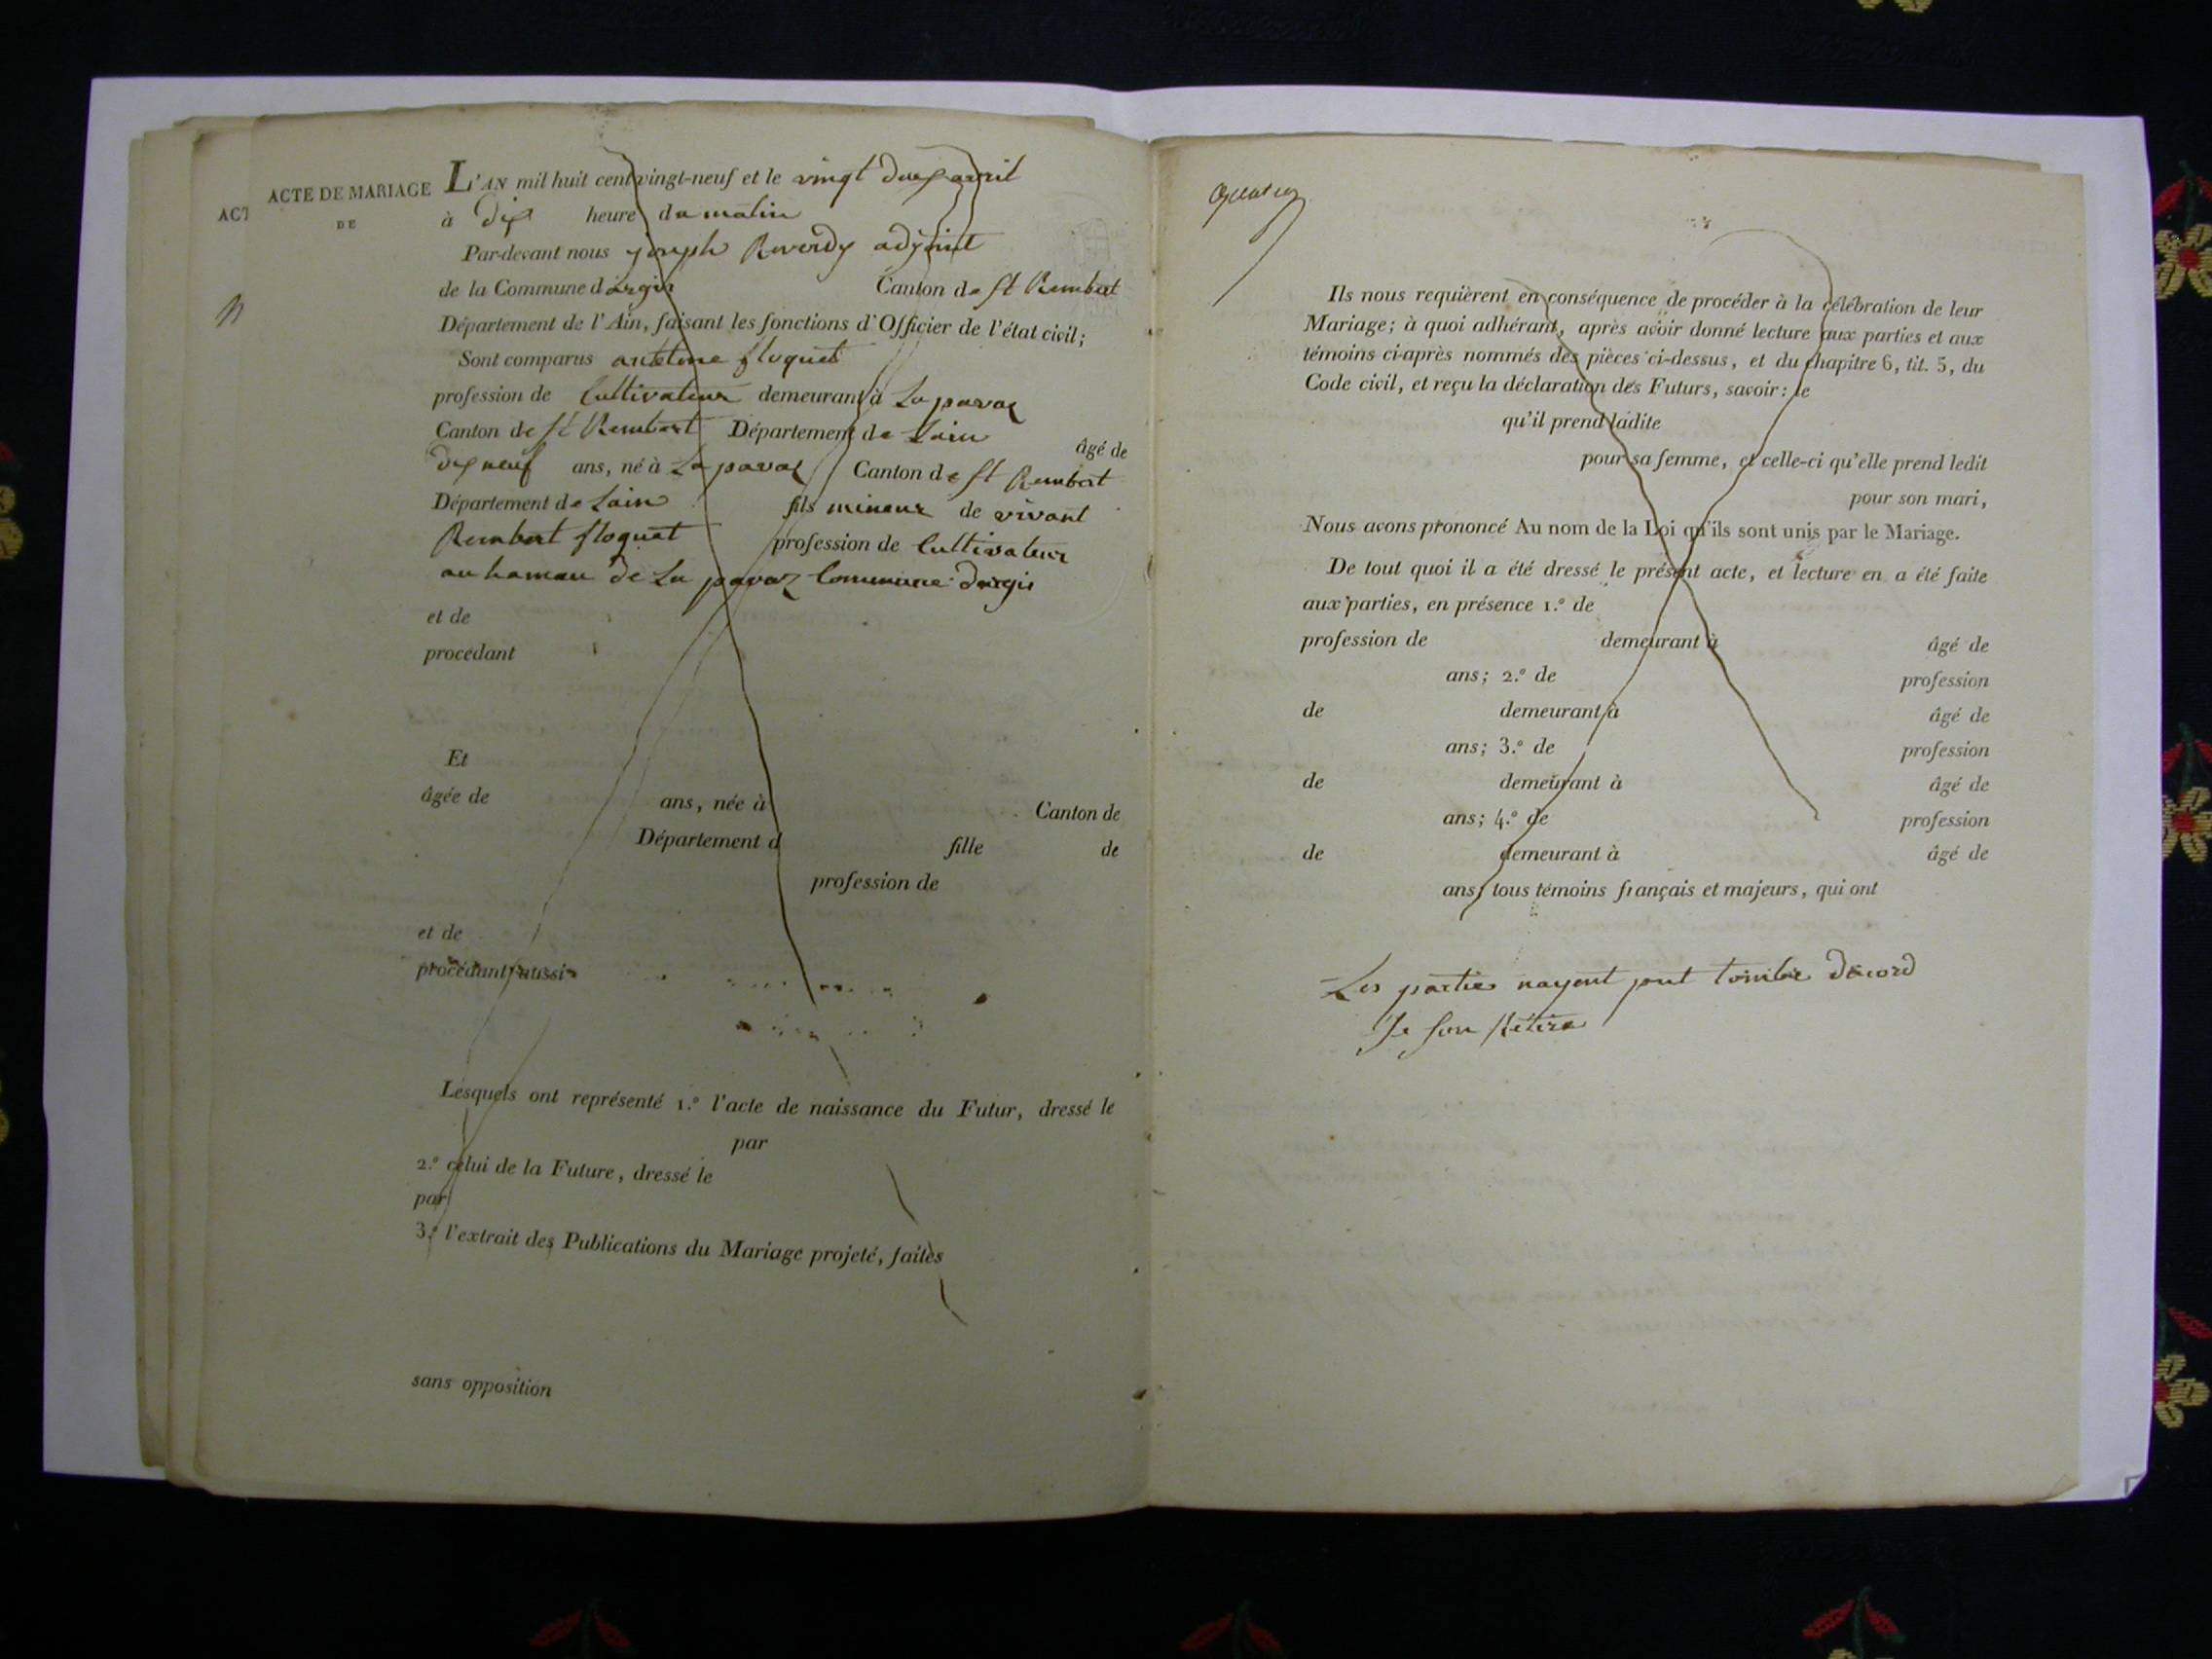 ACT
ACTE DE MARIAGE
DE
L'AN mil huit cent vingt-neuf et le vingt deux avril
à Dix heure du matin
Par-devant nous joseph Reverdy adjoint
de la Commune d'argis Canton de St Rembert
Département de l'Ain, faisant les fonctions d'Officier de l'état civil;
Sont comparus antelme floquet
profession de Cultivateur demeurant à La pavaz
Canton de St Rembert Département de Lain âgé de
dix neuf ans, né à La pavaz Canton de St Rembert
Département de Lain fils mineur de vivant
Rembert floquet profession de Cultivateur
au hameau de La pavaz Commune dargis
et de
procédant
Et
âgée de ans, née à Canton de
Département d fille de
profession de
et de
procédant aussi
Lesquels ont représenté 1.º l'acte de naissance du Futur, dressé le
par
2.º celui de la Future, dressé le
par
3.º l'extrait des Publications du Mariage projeté, faites
sans opposition
Ils nous requièrent en conséquence de procéder à la célébration de leur
Mariage; à quoi adhérant, après avoir donné lecture aux parties et aux
témoins ci-après nommés des pièces ci-dessus, et du chapitre 6, tit. 5, du
Code civil, et reçu la déclaration des Futurs, savoir: le
qu'il prend ladite
pour sa femme, et celle-ci qu'elle prend ledit
pour son mari,
Nous avons prononcé Au nom de la Loi qu'ils sont unis par le Mariage.
De tout quoi il a été dressé le présent acte, et lecture en a été faite
aux parties, en présence 1.º de
profession de demeurant à âgé de
ans; 2.º de profession
de demeurant à âgé de
ans; 3.º de profession
de demeurant à âgé de
ans; 4.º de profession
de demeurant à âgé de
ans, tous témoins français et majeurs, qui ont
Les parties nayent pout tombée dacord
Se son Rétire